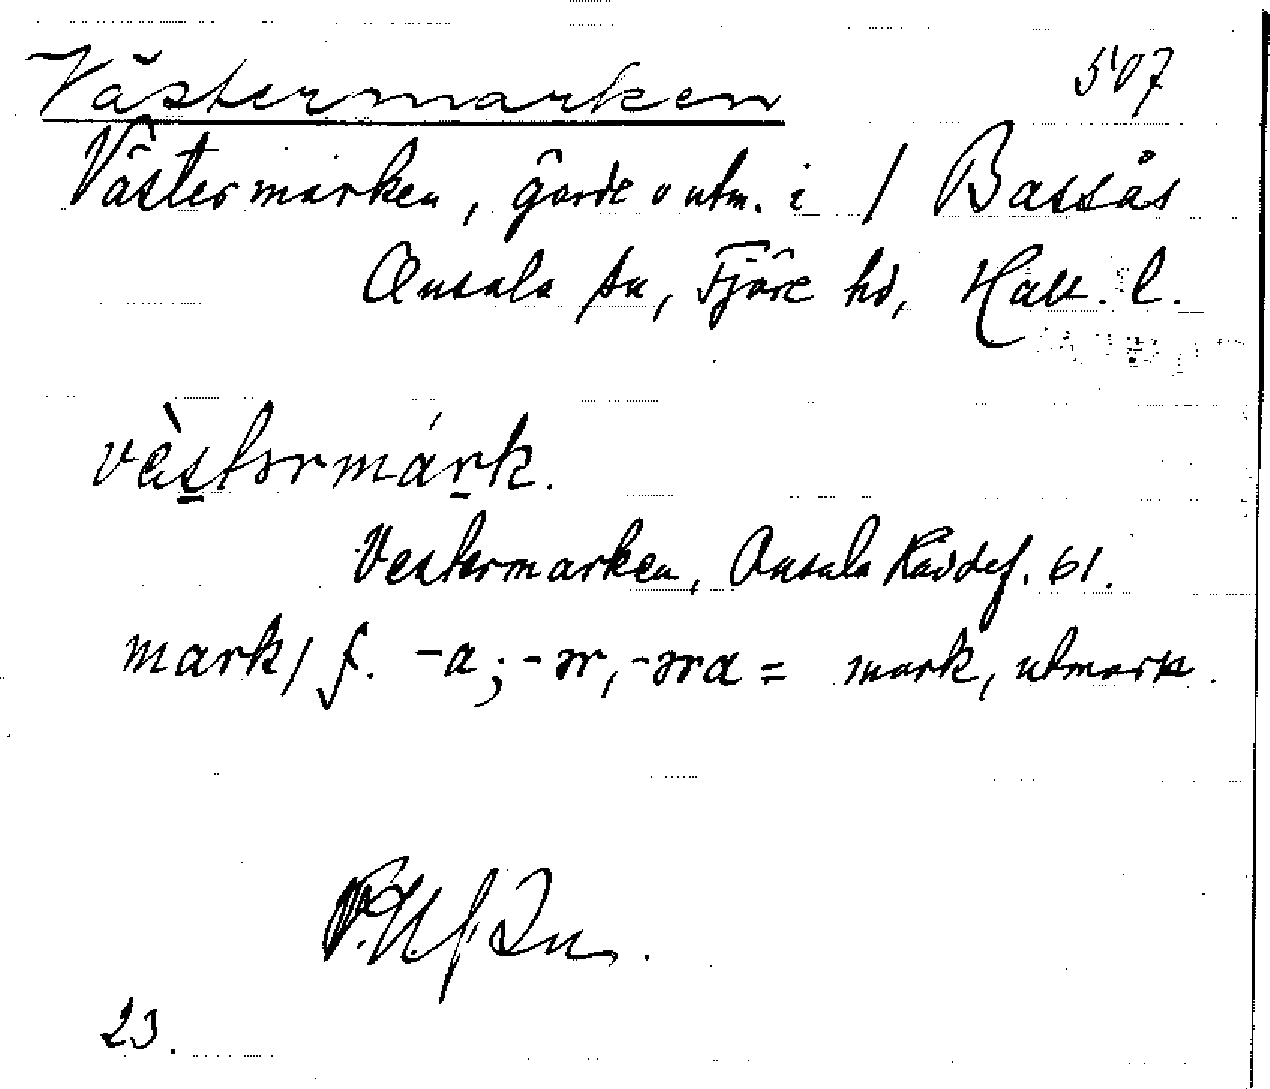 Västermarken 507
Västermarken, gärde o utm. i / Bassås
Onsala sn, Fjäre hd, Hall. l.
vèstərmárk.
Vestermarken, Onsala 61.
mark/ f. -a; -ər, -əra = mark, utmark.
23.